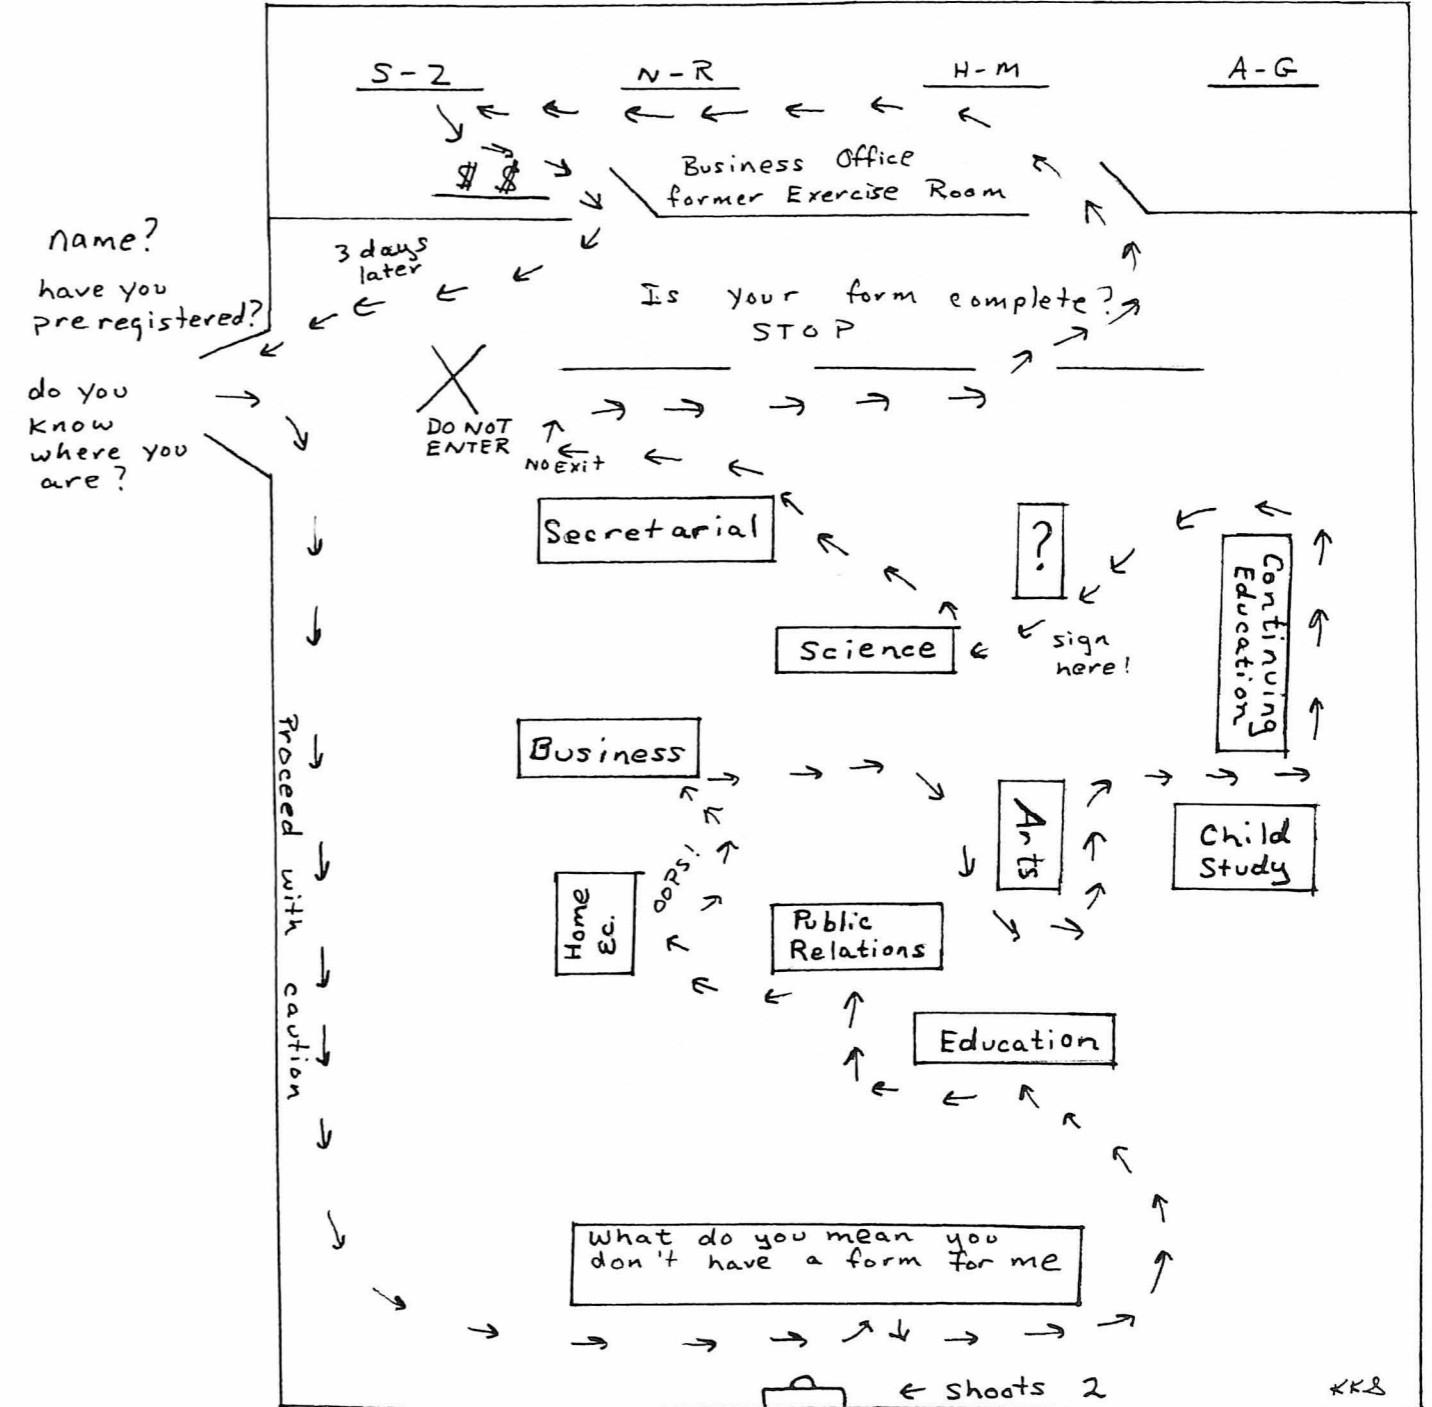 S-Z
N-R
H-M
A-G
$ $
Business Office
former Exercise Room
name?
have you
preregistered?
3 days
later
Is your form complete?
STOP
do you
know
where you
are?
DO NOT
ENTER
NO EXit
Secretarial
?
Continuing
Education
Science
sign
here!
Business
Arts
Child
Study
Proceed with caution
OOPS!
Home
Ec.
Public
Relations
Education
What do you mean you
don't have a form for me
shoots 2
KKS